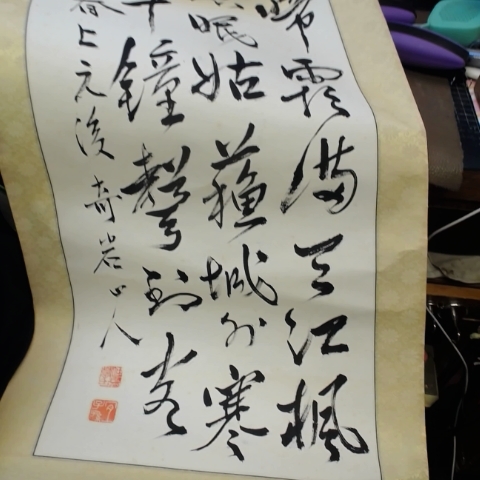 啼霜满天江枫
眠姑蘇城外寒
半鐘聲到客
春上元後奇岩山人